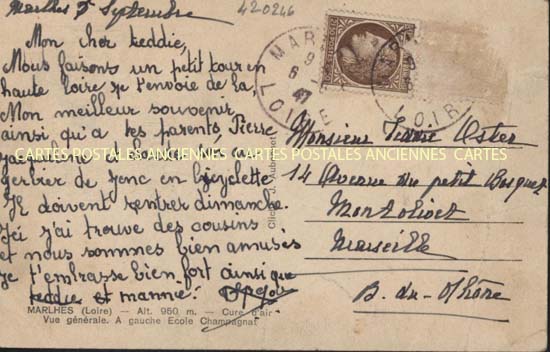 Marlhes 7 Septembre
420246
Mon cher teddie,
Nous faisons un petit tour en
haute Loire je t'envoie de la
Mon meilleur souvenir
ainsi qu'a tes parents. Pierre
gerbier de Jonc en bicyclette
Je doivent rentrer dimanche.
Ici j'ai trouve des cousins
et nous sommes bien amusés
Je t'embrasse bien fort ainsi que
teddie et mannie.
MARLHES (Loire) — Alt. 950 m. — Cure d'air
Vue générale. A gauche Ecole Champagnat
MAR
9
6
47
LOIRE
LOIR
Monsieur Pierre Oster
14 Avenue du petit Bosquet
Montolivet
Marseille
B. du-Rhône
CARTES POSTALES ANCIENNES CARTES POSTALES ANCIENNES CARTES